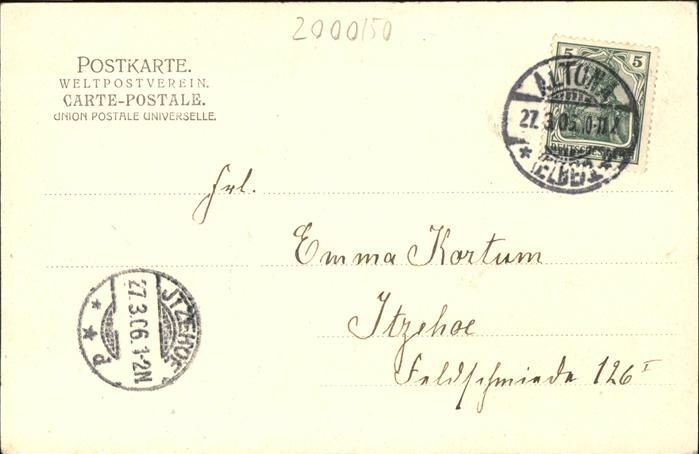 2000/50
POSTKARTE.
WELTPOSTVEREIN.
CARTE-POSTALE.
UNION POSTALE UNIVERSELLE.
5 5
ALTONA
27.3.06.10-11
(ELBE)
Frl.
Emma Kortum
Itzehoe
Feldschmiede 126 I
JTZEHOE
27.3.06.1-2N
d